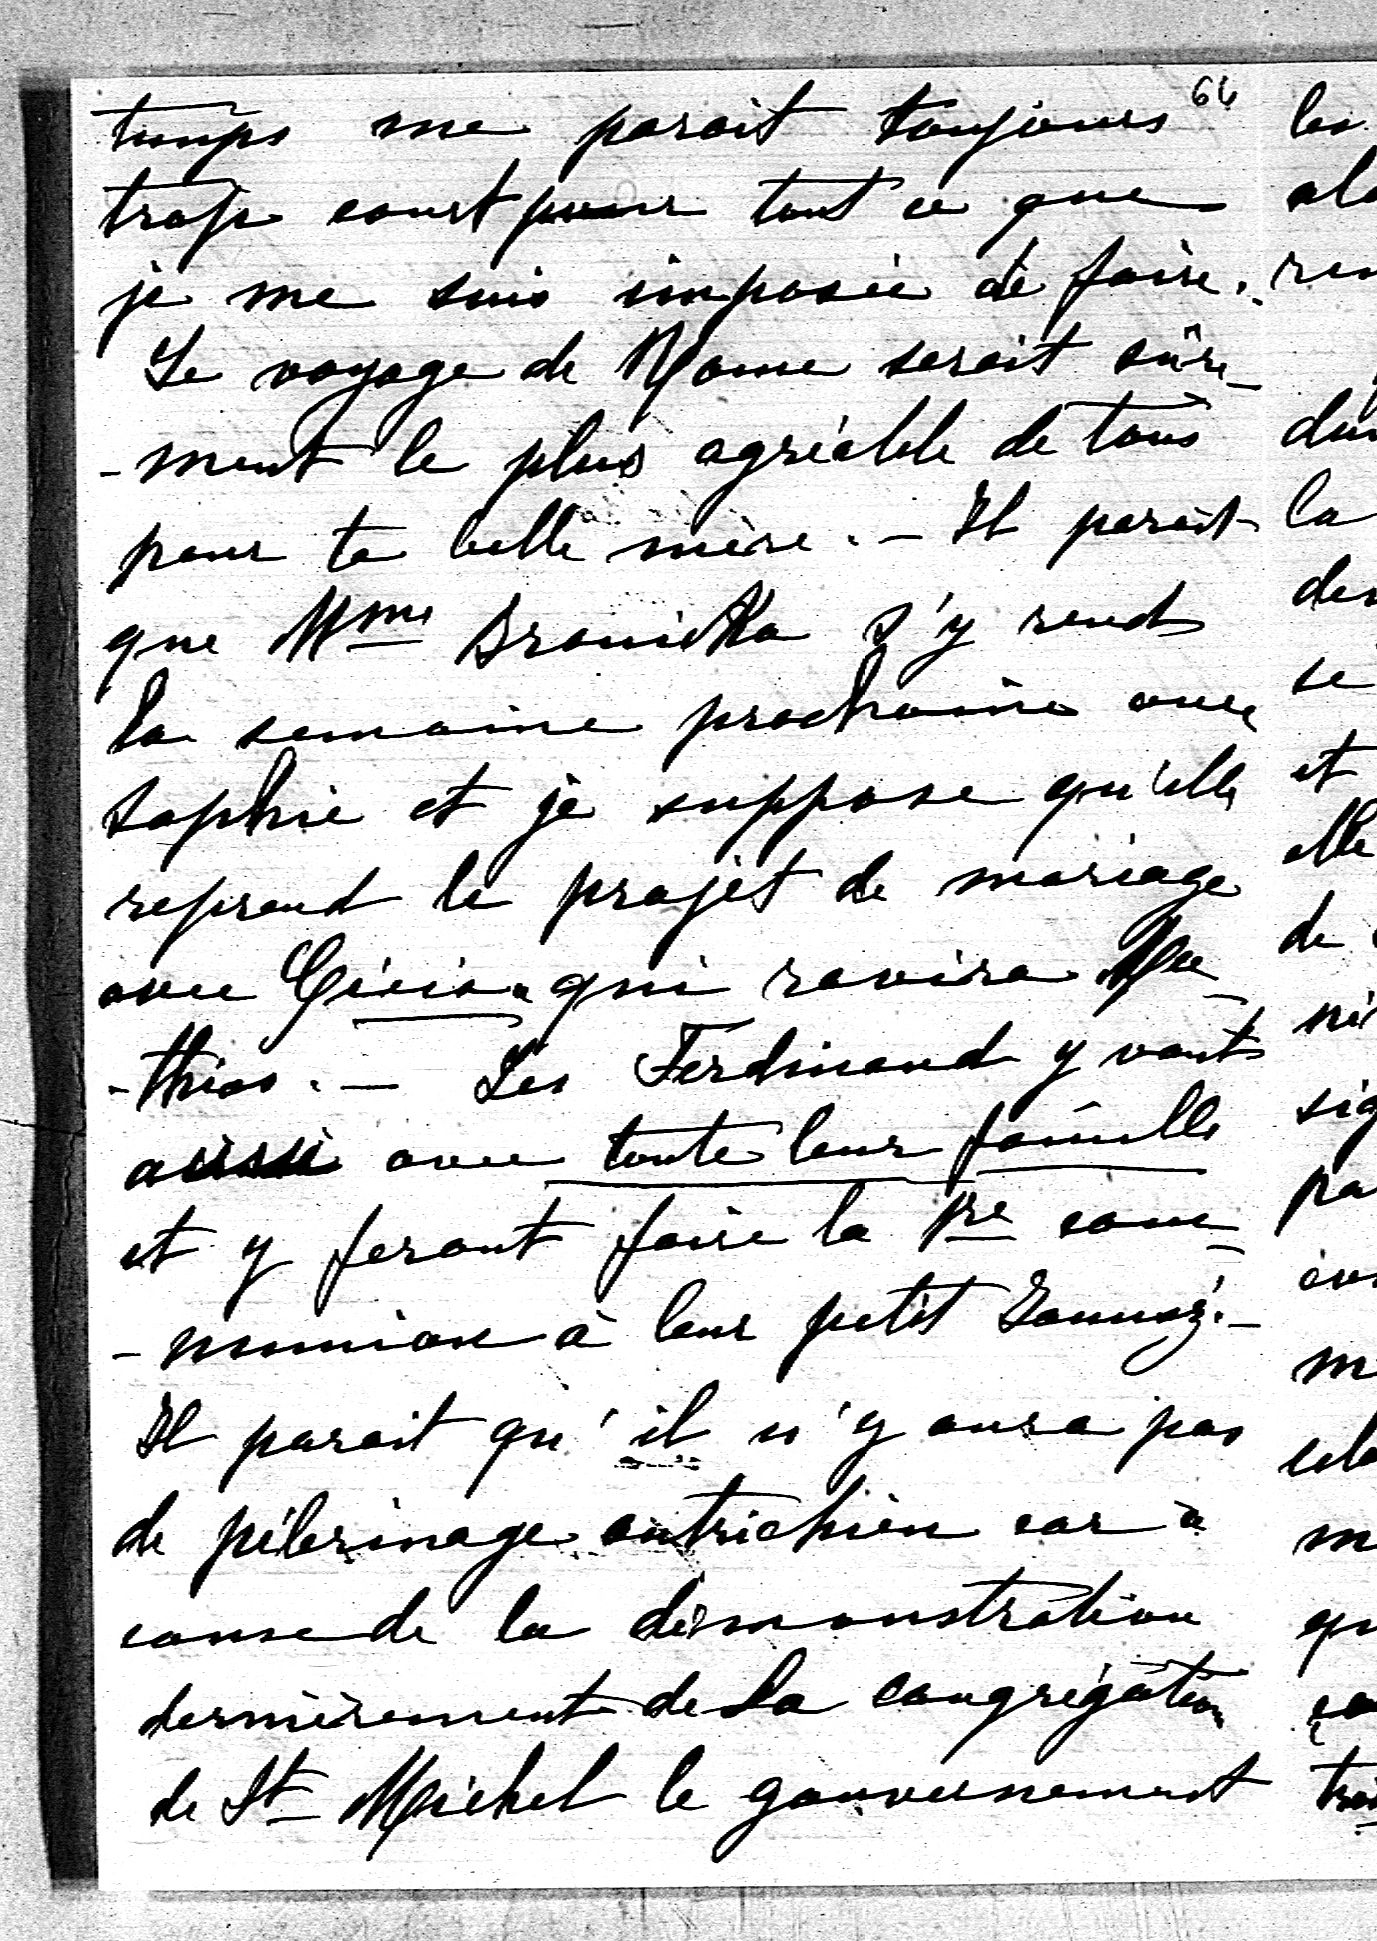 64
temps me parait toujours
trop court pour tout ce que
je me suis imposée de faire.
Le voyage de Rome serait sûre-
-ment le plus agréable de tous
pour ta belle mère. — Il parait
que Mme Branicka s'y rend
la semaine prochaine avec
Sophie et je suppose qu'elle
reprend le projet de mariage
avec qui ravira Ma-
-thias. — Les Ferdinand y vont
aussi avec toute leur famille
et y feront faire la 1re com-
-munion à leur petit
Il parait qu'il n'y aura pas
de pélerinage autrichien car à
cause de la démonstration
dernièrement de la congrégation
de St Michel le gouvernement
les
la
se
et
de